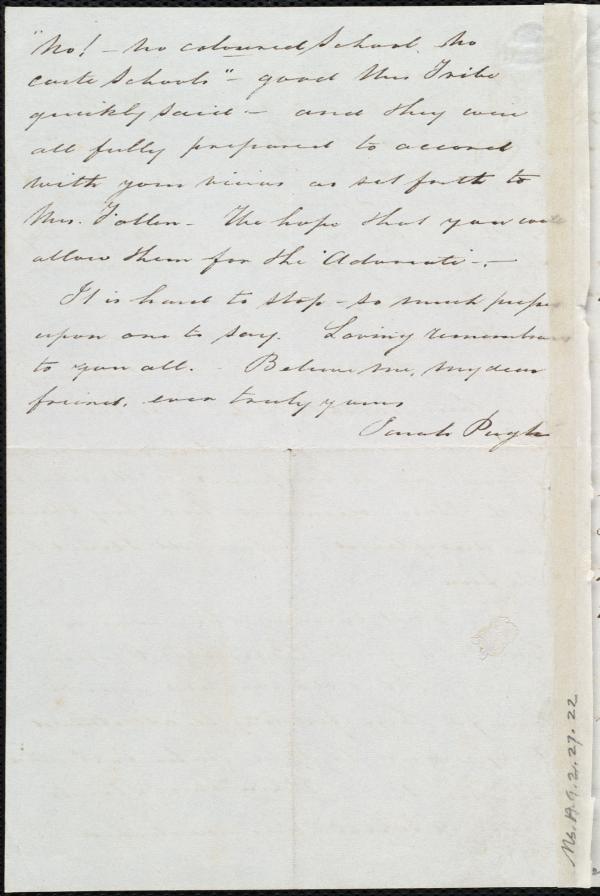 "No! – no coloured School. No
caste Schools" – good Mrs Tribe
quickly said – and they were
all fully prepared to accord
with your views as set forth to
Mrs. Follen – We hope that you will
allow them for the 'Advocate' –
It is hard to stop – so much
upon one to say. Loving
to you all. Believe me, my dear
friend, ever truly yours
Sarah Pugh
Ms. A. 9. 2. 27. 22